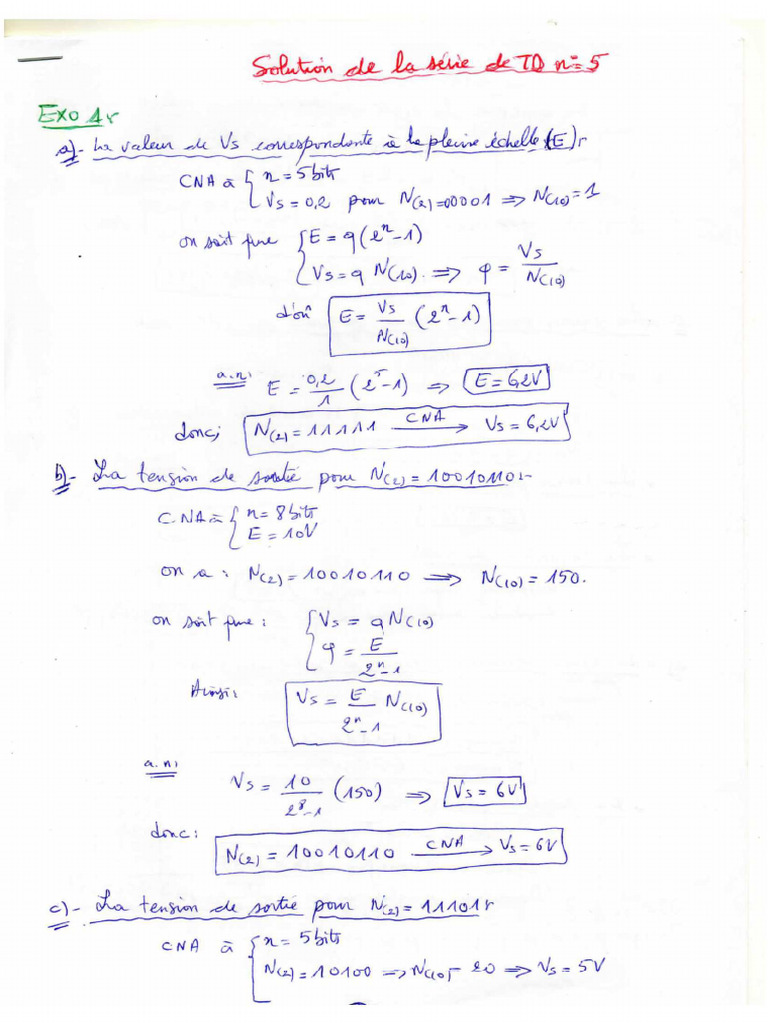 Solution de la série de TD n=5
Exo 1:
a)- La valeur de Vs correspondante à la pleine échelle (E):
CNA à { n = 5bits
Vs = 0,2 pour N(2)=00001 => N(10)=1
on sait que { E = q(2^n-1)
Vs = q N(10). => q = Vs/N(10)
d'où E = Vs/N(10) (2^n-1)
a.n: E = 0,2/1 (2^5-1) => E = 6,2V
donc; N(2) = 11111 CNA→ Vs = 6,2V
b)- La tension de sortie pour N(2) = 10010110:-
CNA à { n = 8bits
E = 10V
on a : N(2) = 10010110 => N(10) = 150.
on sait que : { Vs = q N(10)
q = E/2^n-1
Ainsi: Vs = E/2^n-1 N(10)
a.n: Vs = 10/2^8-1 (150) => Vs = 6V
donc: N(2) = 10010110 CNA→ Vs = 6V
c)- La tension de sortie pour N(2) = 11101:
CNA à { n = 5bits
N(2) = 10100 => N(10) = 20 => Vs = 5V